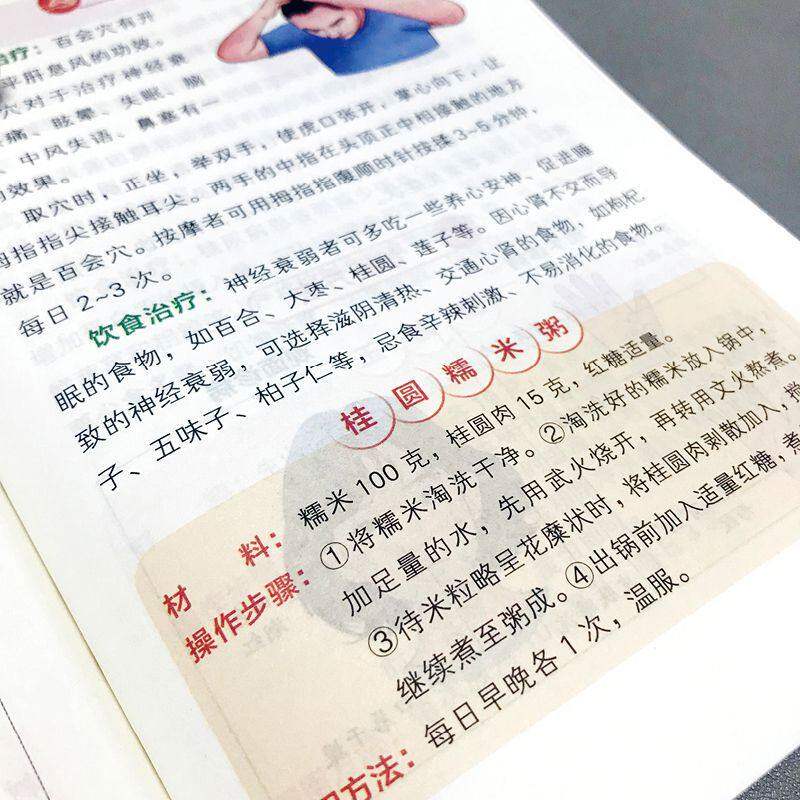 治疗：百会穴有开
平肝息风的功效。
穴对于治疗神经衰
痛、眩晕、失眠、脑
、中风失语、鼻塞有一
的效果。
取穴时，正坐，举双手，使虎口张开，掌心向下，让
拇指指尖接触耳尖。两手的中指在头顶正中相接触的地方
就是百会穴。按摩者可用拇指指腹顺时针按揉3~5分钟，
每日2~3次。
饮食治疗：神经衰弱者可多吃一些养心安神、促进睡
眠的食物，如百合、大枣、桂圆、莲子等。因心肾不交而导
致的神经衰弱，可选择滋阴清热、交通心肾的食物，如枸杞
子、五味子、柏子仁等，忌食辛辣刺激、不易消化的食物。
桂圆糯米粥
材料：糯米100克，桂圆肉15克，红糖适量。
操作步骤：①将糯米淘洗干净。②淘洗好的糯米放入锅中，
加足量的水，先用武火烧开，再转用文火熬煮。
③待米粒略呈花糜状时，将桂圆肉剥散加入，搅
继续煮至粥成。④出锅前加入适量红糖，煮
方法：每日早晚各1次，温服。